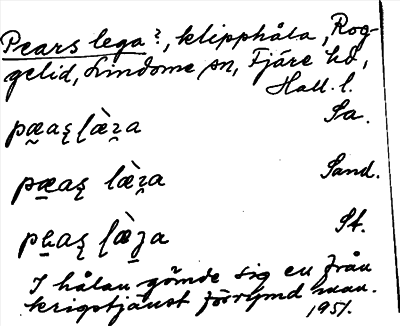 Pears lega?, klipphåla, Rog-
gelid, Lindome sn, Fjäre hd,
Hall. l.
Sa.
Sand.
St.
I hålan gömde sig en från
krigstjänst förrymd man.
1951.